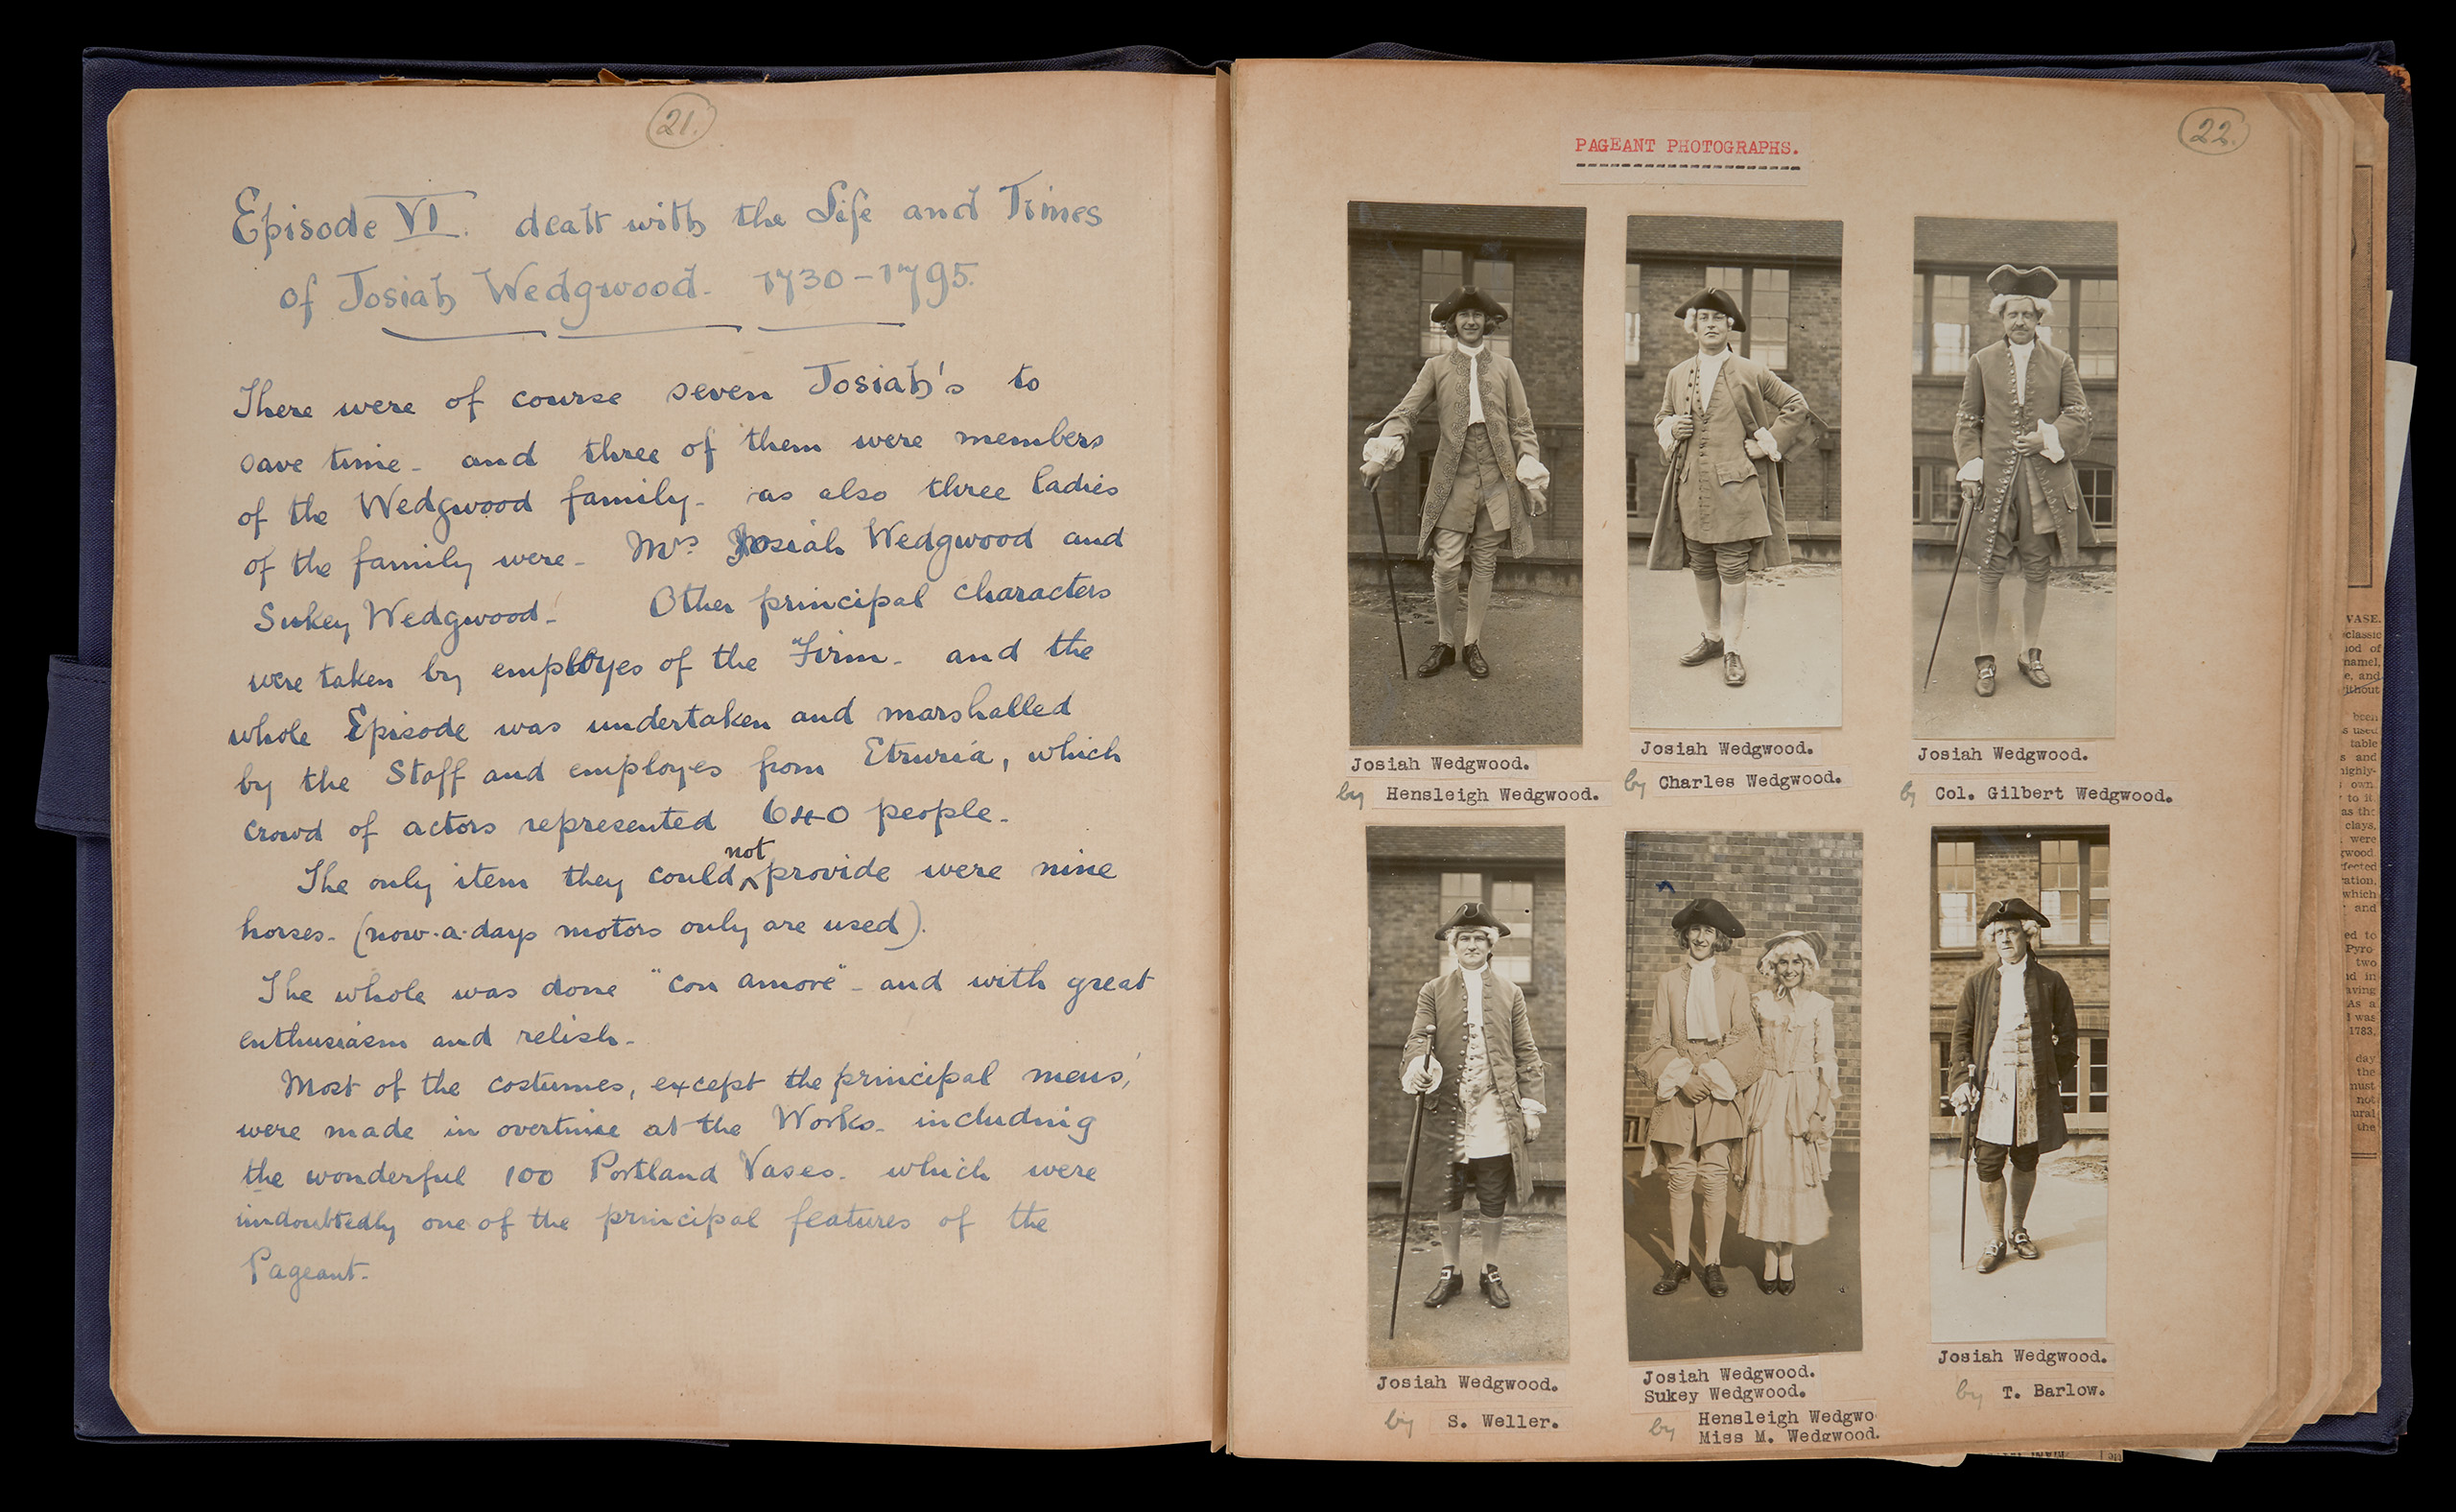 21.
Episode VI. dealt with the Life and Times
of Josiah Wedgwood - 1730-1795.
There were of course seven Josiah's to
save time - and three of them were members
of the Wedgwood family - as also three ladies
of the family were - Mrs Josiah Wedgwood and
Sukey Wedgwood - Other principal characters
were taken by employes of the Firm - and the
whole Episode was undertaken and marshalled
by the Staff and employes from Etruria, which
crowd of actors represented 640 people -
The only item they could not provide were nine
horses - (now-a-days motors only are used).
The whole was done "con amore" - and with great
enthusiasm and relish -
Most of the costumes, except the principal mens',
were made in overtime at the Works - including
the wonderful 100 Portland Vases - which were
undoubtedly one of the principal features of the
Pageant -
22.
PAGEANT PHOTOGRAPHS.
Josiah Wedgwood.
by Hensleigh Wedgwood.
Josiah Wedgwood.
by Charles Wedgwood.
Josiah Wedgwood.
by Col. Gilbert Wedgwood.
Josiah Wedgwood.
by S. Weller.
Josiah Wedgwood.
Sukey Wedgwood.
by Hensleigh Wedgwo
Miss M. Wedgwood.
Josiah Wedgwood.
by T. Barlow.
VASE.
classic
iod of
namel,
e, and
ithout
been
s used
table
s and
highly-
own
to it.
as the
clays,
were
gwood
fected
ration,
which
and
ed to
Pyro
two
id in
aving
As a
I was
1783.
day
the
must
not
ural
the